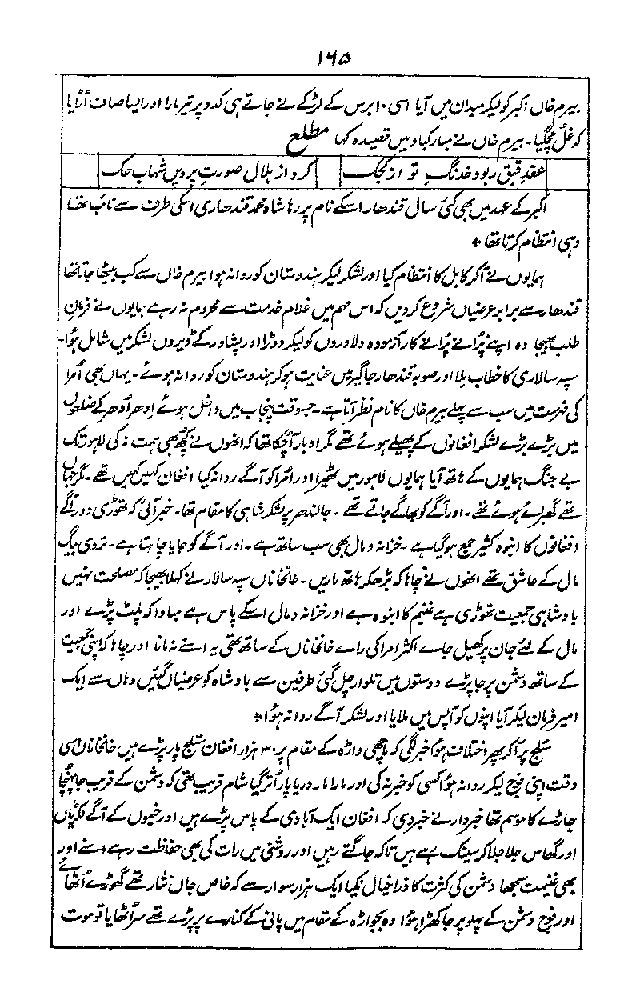 ۱۶۵
بیرم خاں اکبر کو لیکر میدان میں آیا اسی ۱۰ برس کے لڑکے نے جاتے ہی کدو پر تیر مارا اور ایسا صاف اُڑایا
کہ غل مچ گیا۔ بیرم خاں نے مبارکباد میں قصیدہ کہا مطلع
عقد قبق ربود خدنگ تو از کجک کرد از ہلال صورت پرویں شہاب حک
اکبر کے عہد میں بھی کئی سال قندھار اسکے نام پر رہا شاہ محمد قندھاری اسکی طرف سے نائب تھا
وہی انتظام کرتا تھا *
ہمایوں نے آکر کابل کا انتظام کیا اور لشکر لیکر ہندوستان کو روانہ ہوا بیرم خاں سے کب بیٹھا جاتا تھا
قندھار سے برابر عرضیاں شروع کر دیں کہ اس مہم میں غلام خدمت سے محروم نہ رہے ہمایوں نے فرمان
طلب بھیجا وہ اپنے پُرانے پُرانے کار آزمودہ دلاوروں کو لیکر دوڑا اور پشاور کے ڈیروں میں لشکر میں شامل ہُوا۔
سپہ سالاری کا خطاب ملا اور صوبہ قندھار جاگیر میں عنایت ہو کر ہندوستان کو روانہ ہوئے۔ یہاں بھی اُمرا
کی فہرست میں سب سے پہلے بیرم خاں کا نام نظر آتا ہے۔ جسوقت پنجاب میں داخل ہوئے اِدھر اُدھر کے ضلعوں
میں بڑے بڑے لشکر افغانوں کے پھیلے ہوئے تھے مگر ادبار آچکا تھا کہ انھوں نے کچھ بھی ہمت نہ کی لاہور تک
بے جنگ ہمایوں کے ہاتھ آیا ہمایوں لاہور میں ٹھیرا اور امرا کو آگے روانہ کیا افغان کہیں کہیں تھے۔ مگر جہاں
تھے گھبرائے ہوئے تھے۔ اور آگے کو بھاگے جاتے تھے۔ جالندھر پر لشکر شاہی کا مقام تھا۔ خبر آئی کہ تھوڑی دور آگے
افغانوں کا انبوہ کثیر جمع ہو گیا ہے۔ خزانہ و مال بھی سب ساتھ ہے۔ اور آگے کو جایا چاہتا ہے۔ تردی بیگ
مال کے عاشق تھے انھوں نے چاہا کہ بڑھکر ہاتھ ماریں۔ خانخاناں سپہ سالار نے کہلا بھیجا کہ مصلحت نہیں
بادشاہی جمعیت تھوڑی ہے غنیم کا انبوہ ہے اور خزانہ و مال اسکے پاس ہے مبادا کہ پلٹ پڑے اور
مال کے لئے جان پر کھیل جائے اکثر امرا کی رائے خانخاناں کے ساتھ تھی یہ اسنے نہ مانا اور چاہا کہ اپنی جمعیت
کے ساتھ دشمن پر جا پڑے دوستوں میں تلوار چل گئی طرفین سے بادشاہ کو عرضیاں گئیں وہاں سے ایک
امیر فرمان لیکر آیا اپنوں کو آپس میں ملایا اور لشکر آگے روانہ ہُوا *
ستلج پر آکر پھر اختلاف ہُوا خبر لگی کہ ماچھی واڑہ کے مقام پر ۳۰ ہزار افغان ستلج پار پڑے ہیں خانخاناں اسی
وقت اپنی فوج لیکر روانہ ہُوا کسی کو خبر نہ کی اور مارا مار۔ دریا پار اُتر گیا شام قریب تھی کہ دشمن کے قریب جا پہنچا
جاڑے کا موسم تھا خبردار نے خبر دی کہ افغان ایک آبادی کے پاس پڑے ہیں اور خیموں کے آگے لکڑیاں
اور گھاس جلا جلا کر سینک رہے ہیں تاکہ جاگتے رہیں اور روشنی میں رات کی بھی حفاظت رہے اسنے اور
بھی غنیمت سمجھا دشمن کی کثرت کا ذرا خیال نہ کیا ایک ہزار سوار سے کہ خاص جاں نثار تھے گھوڑے اُٹھائے
اور فوج دشمن کے پہلو پر جا کھڑا ہُوا وہ بجواڑہ کے مقام میں پانی کے کنارے پر پڑے تھے سر اُٹھایا تو موت